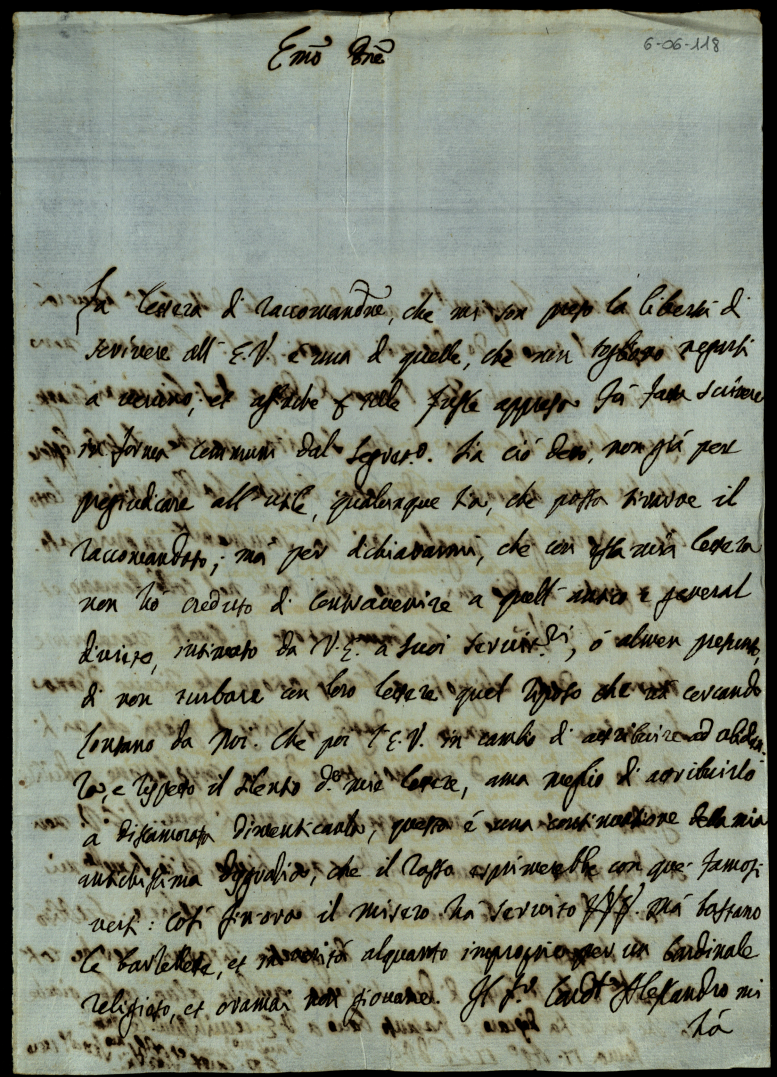 6-06-118
Emõ Sre
La lettera di raccomandne, che mi son preso la libertà di
scrivere all' E.V. è una di quelle, che non sogliono negarsi
a veruno; et
in forma comune dal Segret.o. Sia ciò detto, non già per
pregiudicare all' utile, qualunque sia, che possa trarne il
raccomandato; mà per dichiararmi, che con qsta mia lettera
non hò creduto di contravenire a quell' unico e general
divieto, intimato da V.E. a suoi servit.ri, ò almen
di non turbare con loro lettere quel riposo che và cercando
lontano da Noi. Che poi l' E.V. in cambio di attribuire ad
e rispetto il silentio d.e mie lettere, ama meglio di attribuirlo
a disamorata dimenticanza, questa è una continuatione della mia
antichissima disgratia, che il Tasso esprimerebbe con que' famosi
versi: Così finora il misero hà servito mà bastano
le barzellette, et in verità alquanto improprie per un Cardinale
religioso, et oramai non giovane. Il Sr. Card.l Alessandro mi
hà